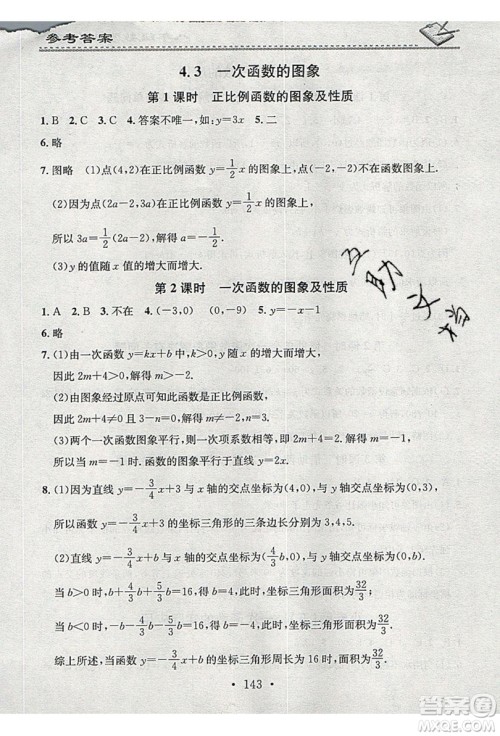 参考答案
4.3 一次函数的图象
第1课时 正比例函数的图象及性质
1. B 2. C 3. C 4. 答案不唯一,如:y=3x 5. 二
6. 略
7. 图略 (1)点(4,2)在正比例函数 y=1/2x 的图象上,点(-2,-2)不在函数图象上.
(2)因为点(2a-2,3a)在正比例函数 y=1/2x 的图象上,
所以 3a=1/2(2a-2),解得 a=-1/2.
(3)y 的值随 x 值的增大而增大.
第2课时 一次函数的图象及性质
1. A 2. B 3. 不在 4. (-3,0) (0,-9) 5. y=-x-1
6. 略
7. (1)由一次函数 y=kx+b 中,k>0,y 随 x 的增大而增大,
因此 2m+4>0. 解得 m>-2.
(2)由图象经过原点可知此函数是正比例函数,
因此 2m+4≠0 且 3-m=0. 解得 m≠-2 且 m=3.
(3)两个一次函数图象平行,则一次项系数相等,即 2m+4=2.
所以 m=-1. 当 m=-1 时. 函数的图象平行于直线 y=2x.
8. (1)因为直线 y=-3/4x+3 与 x 轴的交点坐标为(4,0),与 y 轴交点坐标为(0,3),
所以函数 y=-3/4x+3 的坐标三角形的三条边长分别为 3,4,5.
(2)直线 y=-3/4x+b 与 x 轴的交点坐标为(4/3b,0),与 y 轴交点坐标为(0,b).
当 b>0 时,b+4/3b+5/3b=16,得 b=4,此时,坐标三角形面积为32/3;
当 b<0 时,-b-4/3b-5/3b=16,得 b=-4,此时,坐标三角形面积为32/3.
综上所述,当函数 y=-3/4x+b 的坐标三角形周长为 16 时,面积为32/3.
· 143 ·
互助文档